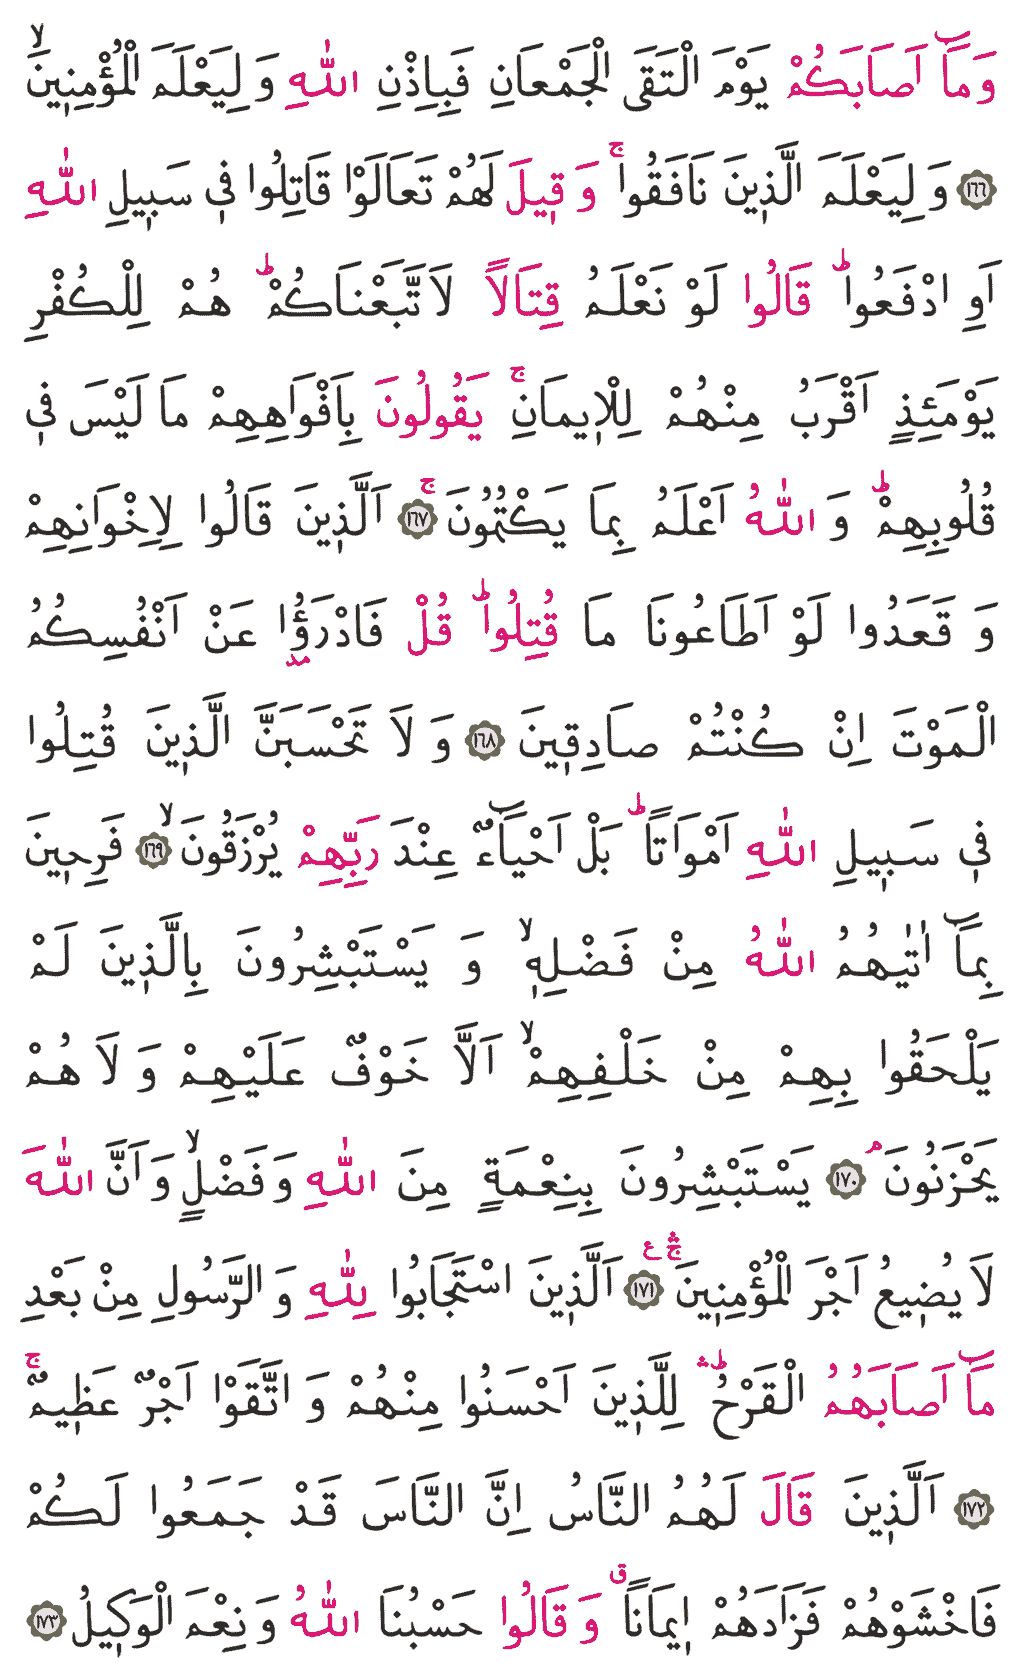 وَمَٓا اَصَابَكُمْ يَوْمَ الْتَقَى الْجَمْعَانِ فَبِاِذْنِ اللّٰهِ وَ لِيَعْلَمَ الْمُؤْمِنٖينَۙ
﴿١٦٦﴾ وَ لِيَعْلَمَ الَّذٖينَ نَافَقُواۚ وَ قٖيلَ لَهُمْ تَعَالَوْا قَاتِلُوا فٖي سَبٖيلِ اللّٰهِ
اَوِ ادْفَعُواؕ قَالُوا لَوْ نَعْلَمُ قِتَالاً لَا تَّبَعْنَاكُمْؕ هُمْ لِلْكُفْرِ
يَوْمَئِذٍ اَقْرَبُ مِنْهُمْ لِلْاٖيمَانِۚ يَقُولُونَ بِاَفْوَاهِهِمْ مَا لَيْسَ فٖي
قُلُوبِهِمْؕ وَ اللّٰهُ اَعْلَمُ بِمَا يَكْتُمُونَۚ ﴿١٦٧﴾ اَلَّذٖينَ قَالُوا لِاِخْوَانِهِمْ
وَ قَعَدُوا لَوْ اَطَاعُونَا مَا قُتِلُواؕ قُلْ فَادْرَؤُ۫ا عَنْ اَنْفُسِكُمُ
الْمَوْتَ اِنْ كُنْتُمْ صَادِقٖينَ ﴿١٦٨﴾ وَ لَا تَحْسَبَنَّ الَّذٖينَ قُتِلُوا
فٖي سَبٖيلِ اللّٰهِ اَمْوَاتاًؕ بَلْ اَحْيَٓاءٌ عِنْدَ رَبِّهِمْ يُرْزَقُونَۙ ﴿١٦٩﴾ فَرِحٖينَ
بِمَٓا اٰتٰيهُمُ اللّٰهُ مِنْ فَضْلِهٖۙ وَ يَسْتَبْشِرُونَ بِالَّذٖينَ لَمْ
يَلْحَقُوا بِهِمْ مِنْ خَلْفِهِمْۙ اَلَّا خَوْفٌ عَلَيْهِمْ وَ لَا هُمْ
يَحْزَنُونَۘ ﴿١٧٠﴾ يَسْتَبْشِرُونَ بِنِعْمَةٍ مِنَ اللّٰهِ وَ فَضْلٍۙ وَ اَنَّ اللّٰهَ
لَا يُضٖيعُ اَجْرَ الْمُؤْمِنٖينَۚۛ ع ﴿١٧١﴾ اَلَّذٖينَ اسْتَجَابُوا لِلّٰهِ وَ الرَّسُولِ مِنْ بَعْدِ
مَٓا اَصَابَهُمُ الْقَرْحُؕۛ لِلَّذٖينَ اَحْسَنُوا مِنْهُمْ وَ اتَّقَوْا اَجْرٌ عَظٖيمٌۚ
﴿١٧٢﴾ اَلَّذٖينَ قَالَ لَهُمُ النَّاسُ اِنَّ النَّاسَ قَدْ جَمَعُوا لَكُمْ
فَاخْشَوْهُمْ فَزَادَهُمْ اٖيمَاناًࣗ وَ قَالُوا حَسْبُنَا اللّٰهُ وَ نِعْمَ الْوَكٖيلُ ﴿١٧٣﴾